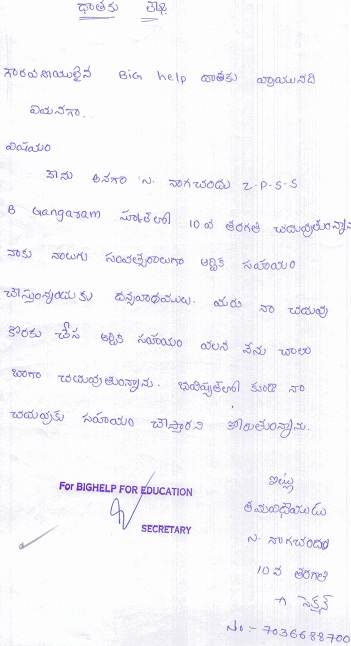 దాతకు లేఖ
గౌరవనీయులైన Big help దాతకు వ్రాయునది
ఏమనగా.
విషయం
నేను అనగా N. నాగచందు Z-P-S-S
B Gangaram స్కూల్‌లో 10 వ తరగతి చదువుతున్నాను
నాకు నాలుగు సంవత్సరాలుగా ఆర్థిక సహాయం
చేస్తున్నందుకు ధన్యవాదములు. మీరు నా చదువు
కొరకు చేసే ఆర్థిక సహాయం వలన నేను చాలా
బాగా చదువుతున్నాను. భవిష్యత్‌లో కూడా నా
చదువుకు సహాయం చేస్తారని కోరుతున్నాను.
ఇట్లు
For BIGHELP FOR EDUCATION
తమవిధేయుడు
SECRETARY
N. నాగచందు
10 వ తరగతి
A సెక్షన్
No:- 7036688700